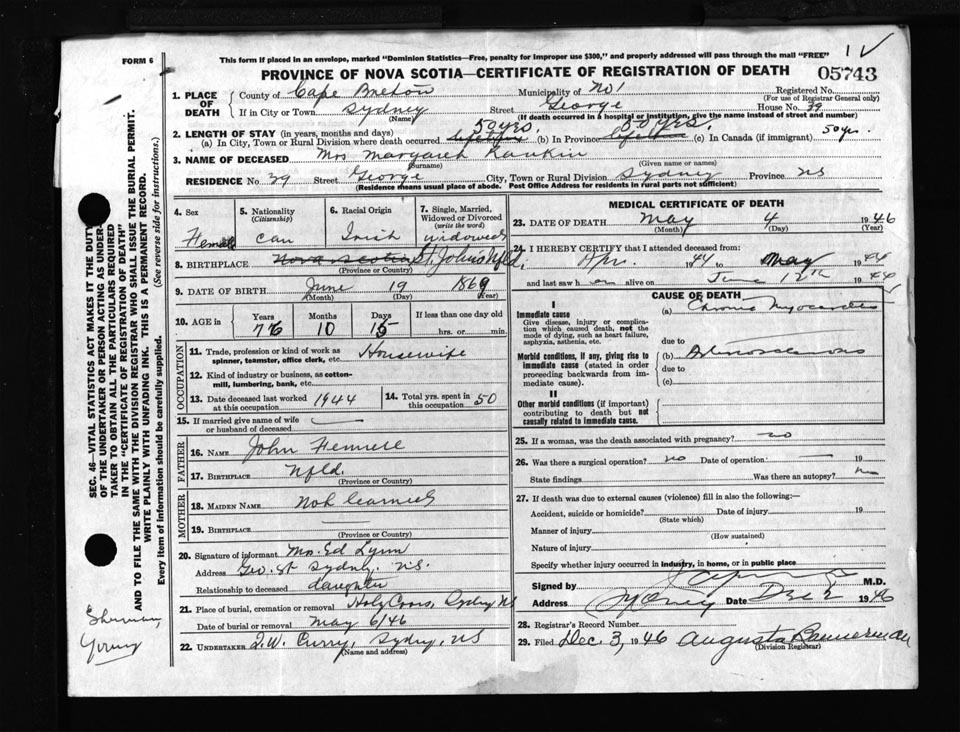 FORM 6
This form if placed in an envelope, marked "Dominion Statistics—Free, penalty for improper use $300," and properly addressed will pass through the mail "FREE"
PROVINCE OF NOVA SCOTIA—CERTIFICATE OF REGISTRATION OF DEATH 05743
1. PLACE OF DEATH
County of Cape Breton Municipality of No 1 Registered No.
(For use of Registrar General only)
If in City or Town Sydney Street George House No. 39
(Name) (If death occurred in a hospital or institution, give name instead of street and number)
2. LENGTH OF STAY (in years, months and days) 50 yrs. 50 yrs.
(a) In City, Town or Rural Division where death occurred lifetime (b) In Province lifetime (c) In Canada (if immigrant) 50 yrs.
3. NAME OF DECEASED Mrs Margaret Rankin
(Surname) (Given name or names)
RESIDENCE No. 39 Street George City, Town or Rural Division Sydney Province NS
(Residence means usual place of abode. Post Office Address for residents in rural parts not sufficient)
4. Sex Female
5. Nationality (Citizenship) Can
6. Racial Origin Irish
7. Single, Married, Widowed or Divorced (write the word) widowed
8. BIRTHPLACE Nova Scotia St. John's Nfld.
(Province or Country)
9. DATE OF BIRTH June 19 1869
(Month) (Day) (Year)
10. AGE in Years Months Days If less than one day old
76 10 15 hrs. or min.
OCCUPATION
11. Trade, profession or kind of work as spinner, teamster, office clerk, etc. Housewife
12. Kind of industry or business, as cotton-mill, lumbering, bank, etc.
13. Date deceased last worked at this occupation 1944
14. Total yrs. spent in this occupation 50
15. If married give name of wife or husband of deceased
FATHER
16. NAME John
17. BIRTHPLACE Nfld.
(Province or Country)
MOTHER
18. MAIDEN NAME Not learned
19. BIRTHPLACE
(Province or Country)
20. Signature of informant Mrs. Ed Lynn
Address Geo. St Sydney. N.S.
Relationship to deceased daughter
21. Place of burial, cremation or removal Holy Cross, Sydney NS
Date of burial or removal May 6/46
22. UNDERTAKER T.W. Curry, Sydney, NS
(Name and address)
MEDICAL CERTIFICATE OF DEATH
23. DATE OF DEATH May 4 1946
(Month) (Day) (Year)
24. I HEREBY CERTIFY that I attended deceased from:
Apr. 1944 to May 1944
and last saw h alive on June 12th 1944
CAUSE OF DEATH
I
Immediate cause
Give disease, injury or complication which caused death, not the mode of dying, such as heart failure, asphyxia, asthenia, etc.
(a) Chronic Myocarditis
due to
Morbid conditions, if any, giving rise to immediate cause (stated in order proceeding backwards from immediate cause).
(b) Arteriosclerosis
due to
(c)
II
Other morbid conditions (if important) contributing to death but not causally related to Immediate cause.
25. If a woman, was the death associated with pregnancy? no
26. Was there a surgical operation? no Date of operation 19
State findings Was there an autopsy? no
27. If death was due to external causes (violence) fill in also the following:
Accident, suicide or homicide? Date of injury 19
(State which)
Manner of injury
(How sustained)
Nature of injury
Specify whether injury occurred in industry, in home, or in public place
Signed by M.D.
Address Sydney Date Dec 2 1946
28. Registrar's Record Number
29. Filed Dec. 3, 1946 Augusta Bannerman
(Division Registrar)
SEC. 46—VITAL STATISTICS ACT MAKES IT THE DUTY
OF THE UNDERTAKER OR PERSON ACTING AS UNDER-
TAKER TO OBTAIN ALL THE PARTICULARS REQUIRED
IN THE "CERTIFICATE OF REGISTRATION OF DEATH"
AND TO FILE THE SAME WITH THE DIVISION REGISTRAR WHO SHALL ISSUE THE BURIAL PERMIT.
WRITE PLAINLY WITH UNFADING INK. THIS IS A PERMANENT RECORD.
Every item of information should be carefully supplied. (See reverse side for instructions.)